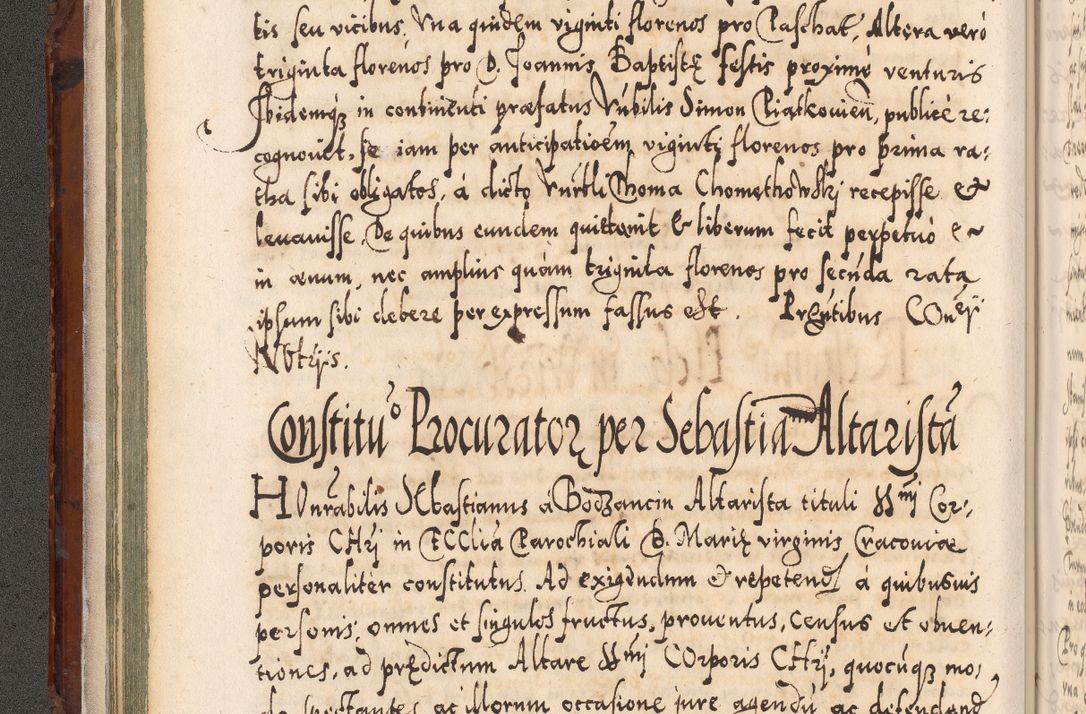 tis seu vicibus, Vna quidem viginti florenos pro Paschat, Altera verò
triginta florenos pro D. Joannis Baptistę festis proximè venturis
Ibidemq́ꝫ in continenti præfatus Nubilis Simon Piątkowien, publicè re:
cognouit, se iam per anticipatioēm viginti florenos pro prima ra-
tha sibi obligatos, á dicto Thoma Chomęthowskj recepisse et
leuauisse, De quibus eundem quittauit & liberum fecit perpetuò &
in æuum, nec amplius quàm triginta florenos pro secūda rata
ipsum sibi debere per expressum fassus est. Pręntibus COnsij
NOtrijs.
Constitu͞o Procurator per Sebastia͞ Altaristā
HOnrabilis SEbastianus á Bodzancin Altarista tituli SSmj Cor-
poris CHrj in ECCliā Parochiali B. Marię virginis Cracouiæ
personaliter constitutus. Ad exigendum et repetend á quibusuis
personis, omnes et singulos fructus, prouentus, census et obuen-
tiones, ad prędictum Altare SSmj COrporis CHrj, quocūqꝫ mo,
do spectantes, ac illorum occasione jure agendū ac defendend